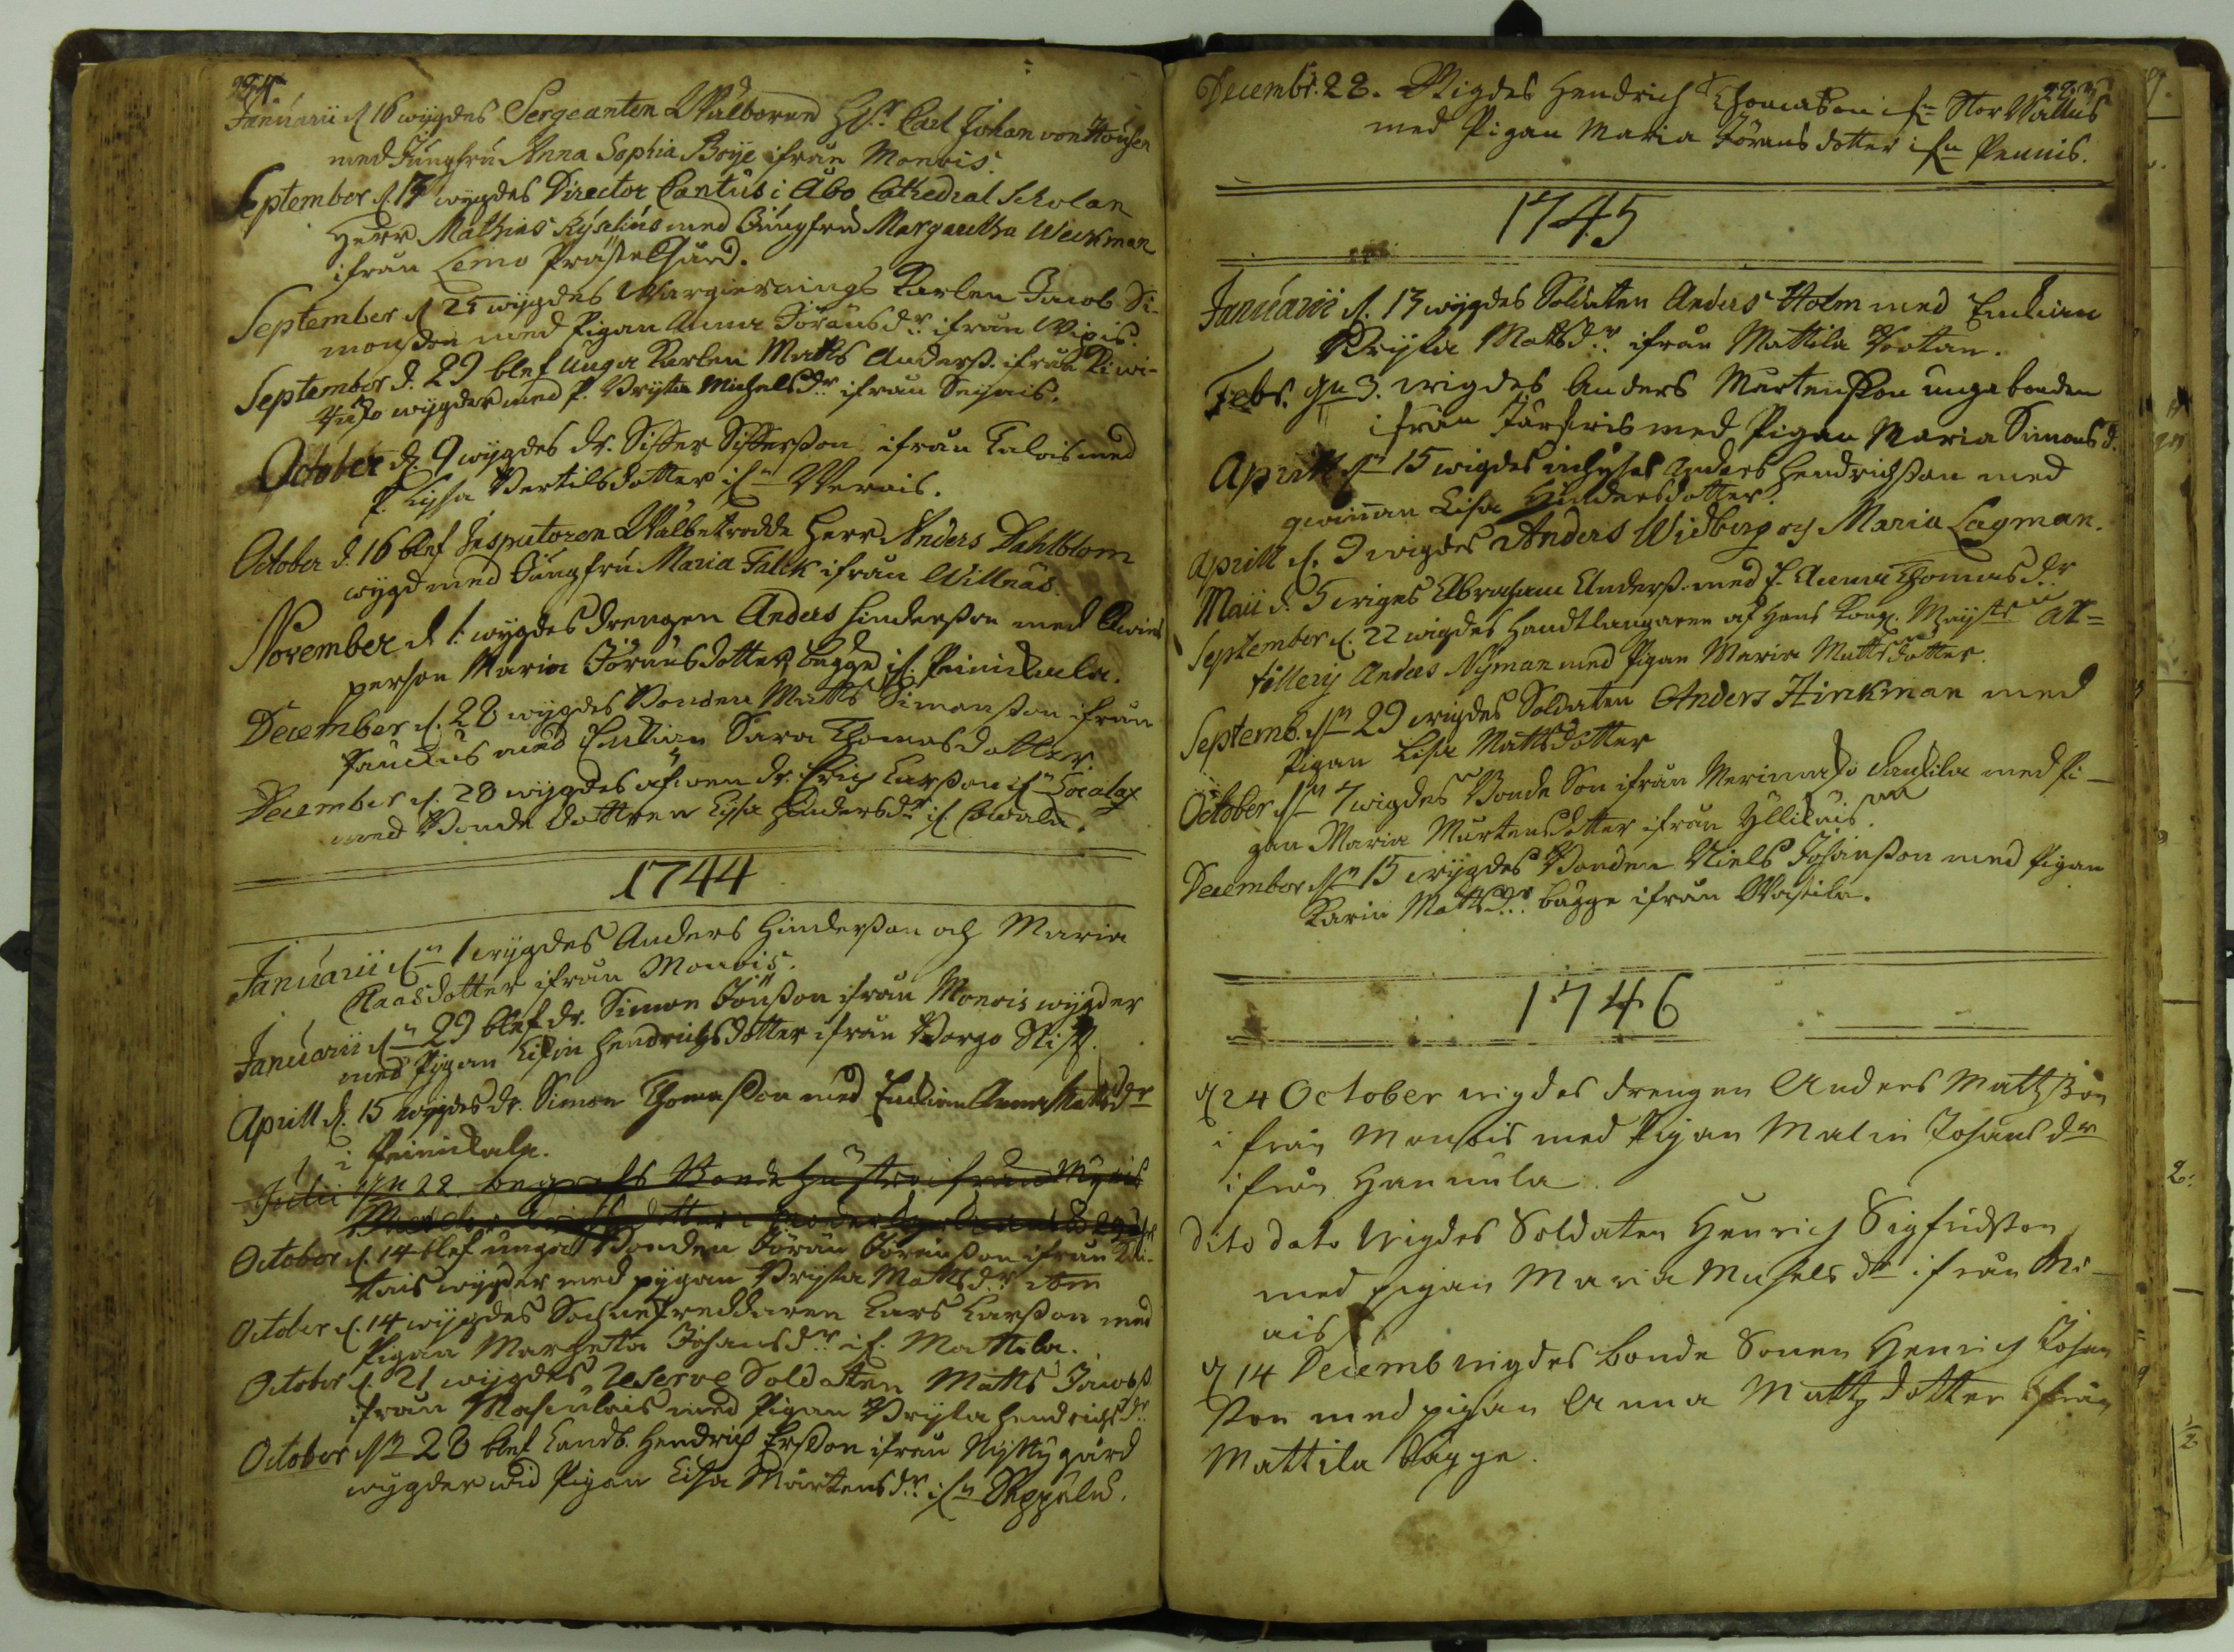 224.
Januarii d 16 wygdes Sergeanten Wälborne H:r Carl Johan von Housen
med Jungfru Anna Sophia Boije ifrån Monois.
September d. 13 wygdes Director Cantus i Åbo Cathedral Scholan
Herr Mathias Ryselius med Jungfru Margaretha Weckman
ifrån Lemo Prästegård.
September d 25 wygdes Wargiernings Karlen Jacob Si-
monsson med Pigan Anna Jöransd:r ifrån
September d. 29 blef unga Karlen Matts Anderss. ifrån
wygder med P. Bryta Michelsd:r ifrån Seynis.
October d. 9 wygdes dr. Siffer Siffersson ifrån Talois med
P. Lysa Bertilsdotter if:n Werais.
October d. 16 blef Inspectoren Wälbetrodde Herr Anders Dahlblom
wygd med Jungfru Maria Falck ifrån Willnäs.
November d 1. wygdes drengen Anders Hindersson med
person Maria Jöransdotter bägge if. Peinikala.
December d. 28 wygdes Bonden Matts Simonsson ifrån
med Enkian Sara Thomasdotter.
December d. 28 wygdes dr. Erich Larsson if:n
med Bonde dottren Lysa Hindersd:r if.
1744
Januarii d:n 1 wygdes Anders Hindersson och Maria
Claasdotter ifrån Monois.
Januarii d:n 29 blef dr. Simon Jönsson ifrån Monois wygder
med Pygan Lisin Hendrichsdotter ifrån Borgo Stift.
Aprill d. 15 wygdes dr. Simon Thomasson med Enkian Anna Mattsd:r
i Peinikala.
Julii d:n 22 begrofs Bonde Hustro ifrån
October d. 14 blef unga Bonden Jöran Jöransson ifrån
tais wygder med pygan Brysta Mattsd:r
October d. 14 wygdes Sochneskreddaren Lars Larsson med
Pigan Margeta Johansd:r if. Mattila.
October d. 21 wygdes Reserve Soldaten Matts Jacobss
ifrån med Pigan Bryta Hendrichsd:r
October d:n 28 blef Landb. Hendrich Ersson ifrån Nystygård
wygder wid Pigan Lisa Mårtensd:r if:n
Decembr. 28. Wigdes Hendrich Thomasson if:n Stor Wallus
med Pigan Maria Jöransdotter if:n Pennis.
1745
Januarii d. 13 wygdes Soldaten Anders Holm med Enkian
Brysta Matsd:r ifrån Mattila
Febr. d:n 3. wigdes Anders Mårtensson unga bonden
ifrån Järfwis med Pigan Maria Simonsd.
Aprill d:n 15 wigdes inhyses Anders Hendrichsson med
qwinnan Lisa Hindersdotter.
Aprill d. 9 wigdes Anders Widberg och Maria Lagman.
Maii d. 5 wigdes Abraham Anderss. med E. Anna Thomasd:r
September d. 22 wigdes Handtlangaren af Hans Kongl. Mayst:s Ar=
tillerij Anders Nyman med Pigan Maria Mattsdotter.
Septemb. d:n 29 wigdes Soldaten Anders Hinkman med
Pigan Lisa Mattsdotter
October d:n 7 wigdes Bonde Son ifrån Merimasko med Pi-
gan Maria Mårtensdotter ifrån
December d:n 15 wygdes Bonden Niels Johansson med Pigan
Karin Mattsd:r bägge ifrån
1746
d 24 October wigdes drengen Anders Mattsson
ifrån Monois med Pigan Malin Johansd:r
ifrån Hannula.
Dito dato Wigdes Soldaten Henrich Sigfridsson
med pigan Maria Michelsd:r ifrån
ais
d 14 Decemb wigdes bonde Sonen Henrich Johan
sson med pigan Anna Mattzdotter ifrån
Mattila bägge.